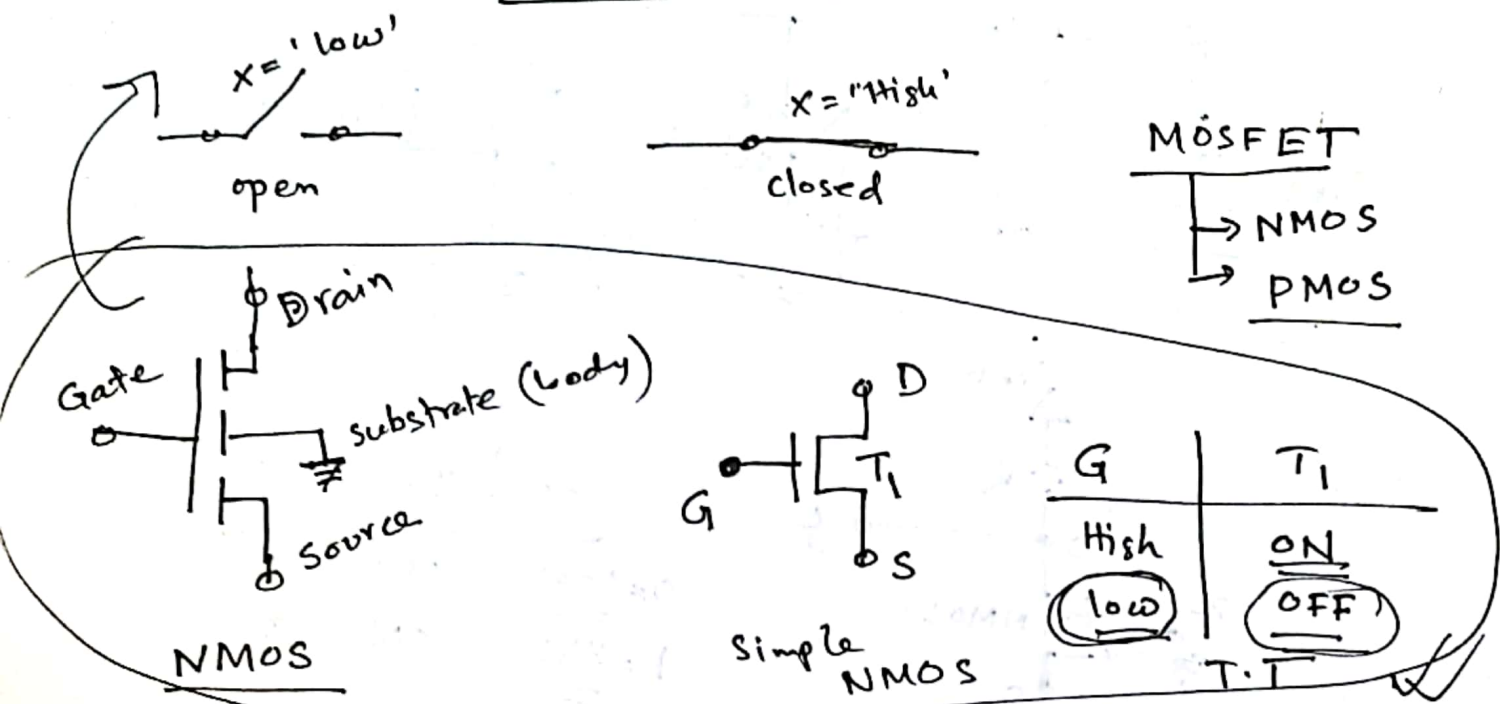 x = 'low'
open
x = "High'
closed
MOSFET
NMOS
PMOS
Drain
Gate
substrate (body)
Source
NMOS
D
G
T1
S
Simple
NMOS
G T1
High ON
low OFF
T.T